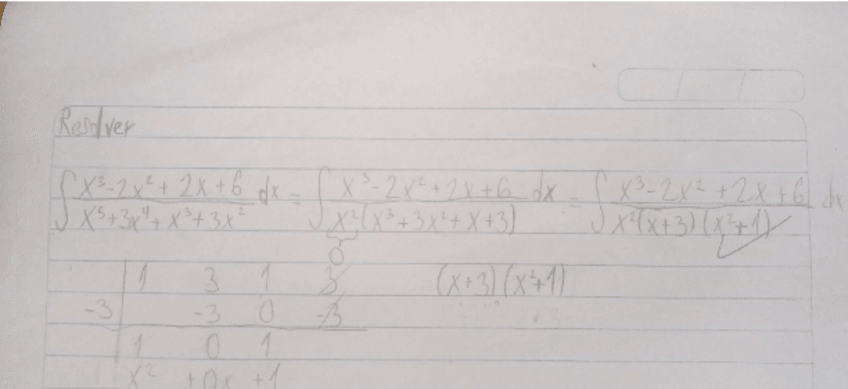 Resolver
∫ x³-2x²+2x+6 / x⁵+3x⁴+x³+3x² dx = ∫ x³-2x²+2x+6 / x²(x³+3x²+x+3) dx = ∫ x³-2x²+2x+6 / x²(x+3)(x²+1) dx
0
1 3 1 3 (x+3)(x²+1)
-3 -3 0 -3
1 0 1
x² +0x +1